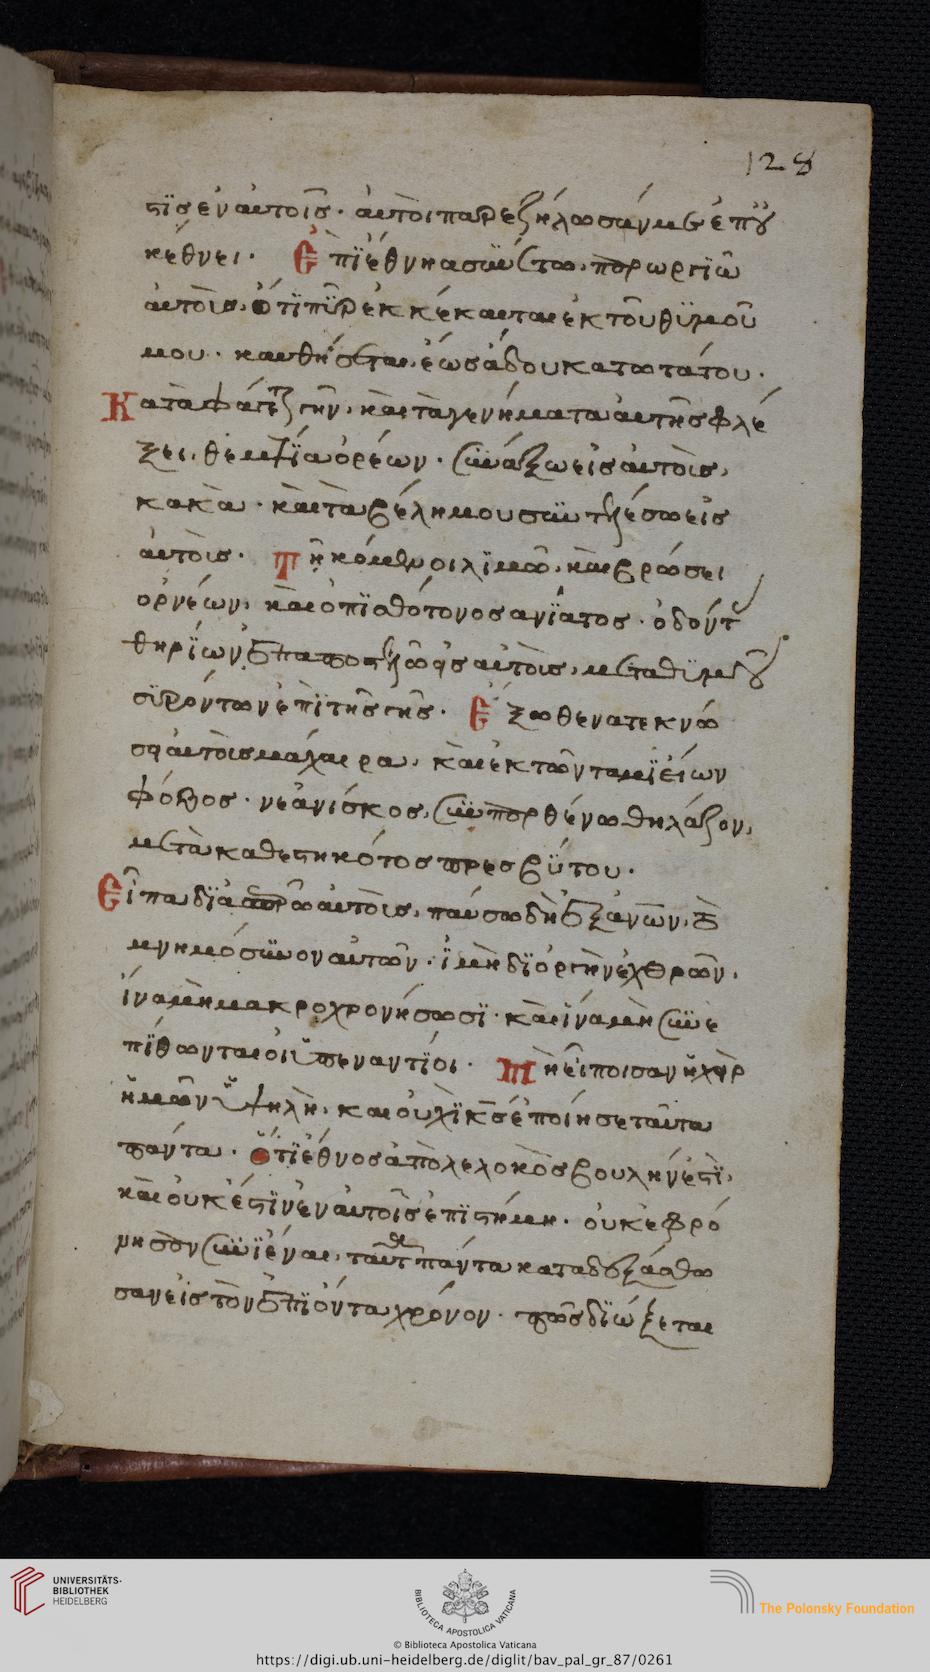 128
τϊς ἐν αὐτοῖς· αὐτοὶ παρεζήλωσάν με ἐπ' οὐ
κ ἔθνει· Ἐπϊ ἔθνη ἀσϋνέτω παρωργϊῶ
αὐτοὺς, ὅτϊ πῦρ ἐκκέκαυται ἐκ τοῦ θϋμοῦ
μου· καυθήσεται ἕως ἅδου κατωτάτου·
Καταφάγεται γῆν, καὶ τὰ γενήματα αὐτῆς φλέ
ξει, θεμέλϊα ὀρέων· συνάξω εἰς αὐτοὺς,
κακὰ· καὶ τὰ βέλη μου συντελέσω εἰς
αὐτοὺς· Τηκόμενοι λϊμῶ, καὶ βρώσει
ὀρνέων, καὶ ὀπϊσθότονος ἀνΐατος· ὀδόντας
θηρΐων ἐπαποστελῶ εἰς αὐτοὺς, μετὰ θϋμοῦ
σϋρόντων ἐπὶ τῆς γῆς· Ἔξωθεν ἀτεκνώ
σει αὐτοὺς μάχαιρα, καὶ ἐκ τῶν ταμϊείων
φόβος· νεανίσκος, σὺν παρθένω θηλάζον,
μετὰ καθεστηκότος πρεσβΰτου·
Εἶπα δϊασπερῶ αὐτοὺς, παύσω δὴ ἐξ ἀνῶν, τὸ
μνημόσϋνον αὐτῶν· εἰ μὴ δϊ ὀργὴν ἐχθρῶν,
ἵνα μὴ μακροχρονήσωσϊ· καὶ ἵνα μὴ συνε
πίθωνται οἱ ὑπεναντΐοι· Μὴ εἴποισαν ἡ χεὶρ
ἡμῶν ὑψηλὴ, καὶ οὐχὶ κς ἐποίησε ταῦτα
πάντα· ὅτϊ ἔθνος ἀπολελοκὸς βουλήν ἐστϊ,
καὶ οὐκ ἔστϊν ἐν αὐτοῖς ἐπϊστήμη· οὐκ ἐφρό
νησαν συνϊέναι, ταῦτα πάντα καταδεξάσθω
σαν εἰς τὸν ἐπϊόντα χρόνον· πῶς δϊώξεται
UNIVERSITÄTS-
BIBLIOTHEK
HEIDELBERG
BIBLIOTECA APOSTOLICA VATICANA
The Polonsky Foundation
© Biblioteca Apostolica Vaticana
https://digi.ub.uni-heidelberg.de/diglit/bav_pal_gr_87/0261